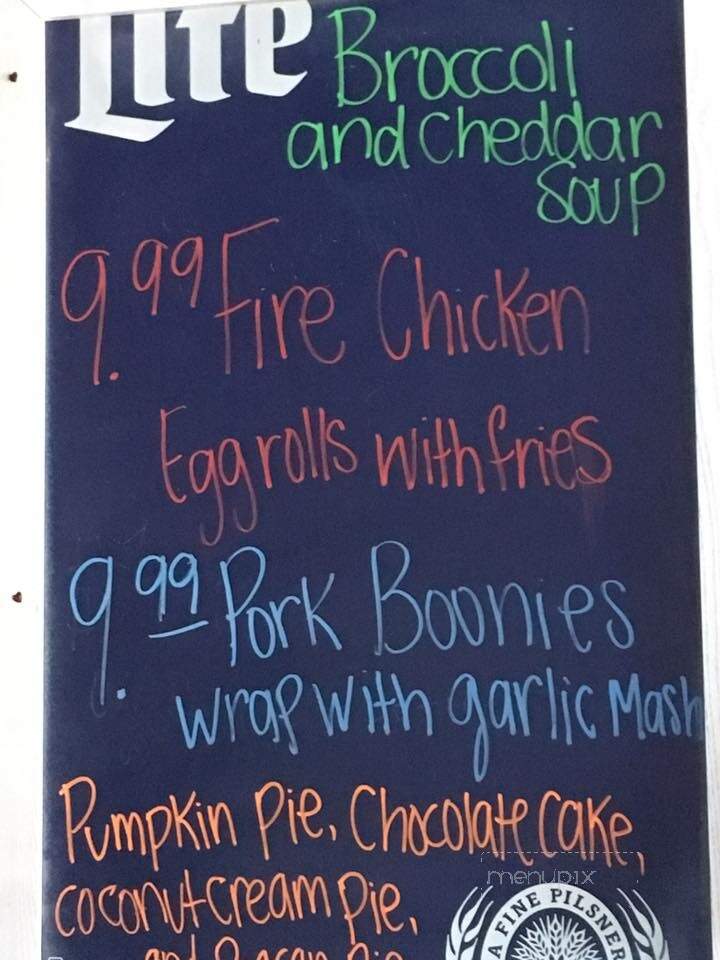 Lite
Broccoli
and Cheddar
Soup
9.99 Fire Chicken
Eggrolls with fries
9.99 Pork Boonies
wrap with garlic Mash
Pumpkin Pie, Chocolate Cake,
coconut cream Pie,
menupix
A FINE PILSNER
and Pie